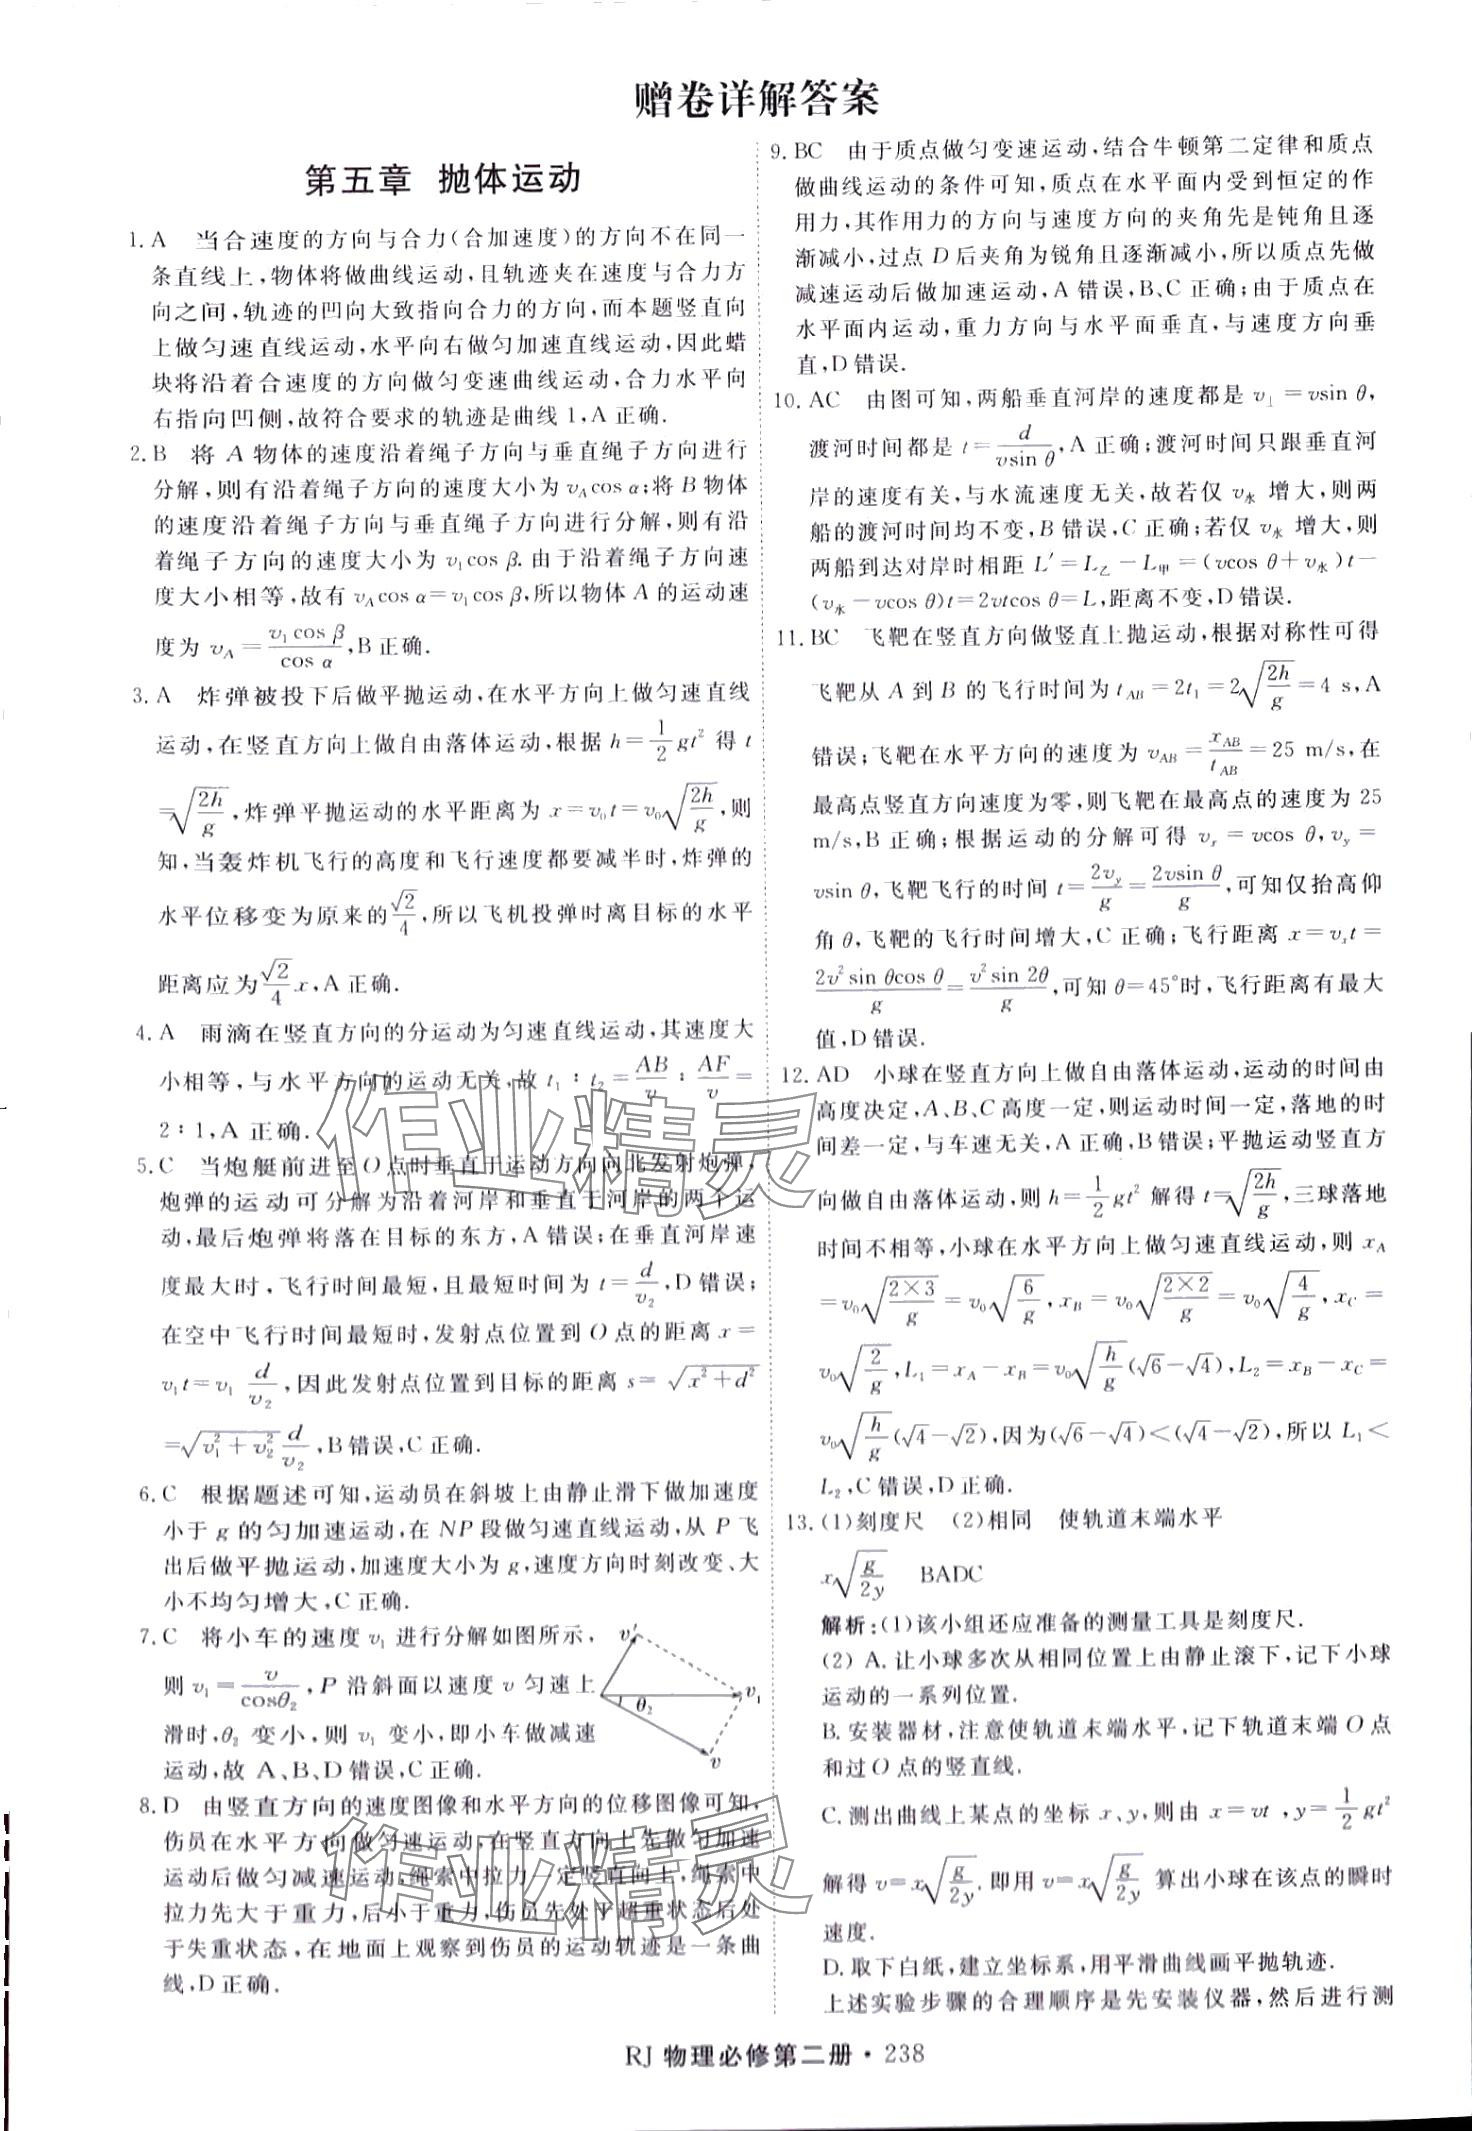 赠卷详解答案
第五章 抛体运动
1. A 当合速度的方向与合力(合加速度)的方向不在同一
条直线上,物体将做曲线运动,且轨迹夹在速度与合力方
向之间,轨迹的凹向大致指向合力的方向,而本题竖直向
上做匀速直线运动,水平向右做匀加速直线运动,因此蜡
块将沿着合速度的方向做匀变速曲线运动,合力水平向
右指向凹侧,故符合要求的轨迹是曲线 1,A 正确.
2. B 将 A 物体的速度沿着绳子方向与垂直绳子方向进行
分解,则有沿着绳子方向的速度大小为 v_A cos α;将 B 物体
的速度沿着绳子方向与垂直绳子方向进行分解,则有沿
着绳子方向的速度大小为 v₁cos β. 由于沿着绳子方向速
度大小相等,故有 v_A cos α=v₁cos β,所以物体 A 的运动速
度为 v_A=v₁cos β/cos α,B 正确.
3. A 炸弹被投下后做平抛运动,在水平方向上做匀速直线
运动,在竖直方向上做自由落体运动,根据 h=1/2 gt² 得 t
=√(2h/g),炸弹平抛运动的水平距离为 x=v₀t=v₀√(2h/g),则
知,当轰炸机飞行的高度和飞行速度都要减半时,炸弹的
水平位移变为原来的√2/4,所以飞机投弹时离目标的水平
距离应为√2/4 x,A 正确.
4. A 雨滴在竖直方向的分运动为匀速直线运动,其速度大
小相等,与水平方向的运动无关,故 t₁∶t₂=AB/v∶AF/v=
2∶1,A 正确.
5. C 当炮艇前进至 O 点时垂直于运动方向向北发射炮弹,
炮弹的运动可分解为沿着河岸和垂直于河岸的两个运
动,最后炮弹将落在目标的东方,A 错误;在垂直河岸速
度最大时,飞行时间最短,且最短时间为 t=d/v₂,D 错误;
在空中飞行时间最短时,发射点位置到 O 点的距离 x=
v₁t=v₁ d/v₂,因此发射点位置到目标的距离 s=√(x²+d²)
=√(v₁²+v₂²) d/v₂,B 错误,C 正确.
6. C 根据题述可知,运动员在斜坡上由静止滑下做加速度
小于 g 的匀加速运动,在 NP 段做匀速直线运动,从 P 飞
出后做平抛运动,加速度大小为 g,速度方向时刻改变、大
小不均匀增大,C 正确.
7. C 将小车的速度 v₁ 进行分解如图所示,
则 v₁=v/cosθ₂,P 沿斜面以速度 v 匀速上
滑时,θ₂ 变小,则 v₁ 变小,即小车做减速
运动,故 A、B、D 错误,C 正确.
v′
v₁
θ₂
v
8. D 由竖直方向的速度图像和水平方向的位移图像可知,
伤员在水平方向做匀速运动,在竖直方向上先做匀加速
运动后做匀减速运动,绳索中拉力一定竖直向上,绳索中
拉力先大于重力,后小于重力,伤员先处于超重状态后处
于失重状态,在地面上观察到伤员的运动轨迹是一条曲
线,D 正确.
9. BC 由于质点做匀变速运动,结合牛顿第二定律和质点
做曲线运动的条件可知,质点在水平面内受到恒定的作
用力,其作用力的方向与速度方向的夹角先是钝角且逐
渐减小,过点 D 后夹角为锐角且逐渐减小,所以质点先做
减速运动后做加速运动,A 错误,B、C 正确;由于质点在
水平面内运动,重力方向与水平面垂直,与速度方向垂
直,D 错误.
10. AC 由图可知,两船垂直河岸的速度都是 v⊥=vsin θ,
渡河时间都是 t=d/(vsin θ),A 正确;渡河时间只跟垂直河
岸的速度有关,与水流速度无关,故若仅 v水 增大,则两
船的渡河时间均不变,B 错误,C 正确;若仅 v水 增大,则
两船到达对岸时相距 L′=L乙-L甲=(vcos θ+v水)t-
(v水-vcos θ)t=2vtcos θ=L,距离不变,D 错误.
11. BC 飞靶在竖直方向做竖直上抛运动,根据对称性可得
飞靶从 A 到 B 的飞行时间为 t_AB=2t₁=2√(2h/g)=4 s,A
错误;飞靶在水平方向的速度为 v_AB=x_AB/t_AB=25 m/s,在
最高点竖直方向速度为零,则飞靶在最高点的速度为 25
m/s,B 正确;根据运动的分解可得 v_x=vcos θ,v_y=
vsin θ,飞靶飞行的时间 t=2v_y/g=2vsin θ/g,可知仅抬高仰
角 θ,飞靶的飞行时间增大,C 正确;飞行距离 x=v_x t=
2v²sin θcos θ/g=v²sin 2θ/g,可知 θ=45°时,飞行距离有最大
值,D 错误.
12. AD 小球在竖直方向上做自由落体运动,运动的时间由
高度决定,A、B、C 高度一定,则运动时间一定,落地的时
间差一定,与车速无关,A 正确,B 错误;平抛运动竖直方
向做自由落体运动,则 h=1/2 gt² 解得 t=√(2h/g),三球落地
时间不相等,小球在水平方向上做匀速直线运动,则 x_A
=v₀√(2×3/g)=v₀√(6/g),x_B=v₀√(2×2/g)=v₀√(4/g),x_C=
v₀√(2/g),L₁=x_A-x_B=v₀√(h/g)(√6-√4),L₂=x_B-x_C=
v₀√(h/g)(√4-√2),因为(√6-√4)<(√4-√2),所以 L₁<
L₂,C 错误,D 正确.
13. (1)刻度尺 (2)相同 使轨道末端水平
x√(g/2y) BADC
解析:(1)该小组还应准备的测量工具是刻度尺.
(2) A. 让小球多次从相同位置上由静止滚下,记下小球
运动的一系列位置.
B. 安装器材,注意使轨道末端水平,记下轨道末端 O 点
和过 O 点的竖直线.
C. 测出曲线上某点的坐标 x、y,则由 x=vt ,y=1/2 gt²
解得 v=x√(g/2y). 即用 v=x√(g/2y) 算出小球在该点的瞬时
速度.
D. 取下白纸,建立坐标系,用平滑曲线画平抛轨迹.
上述实验步骤的合理顺序是先安装仪器,然后进行测
RJ 物理必修第二册・238
作业精灵
作业精灵